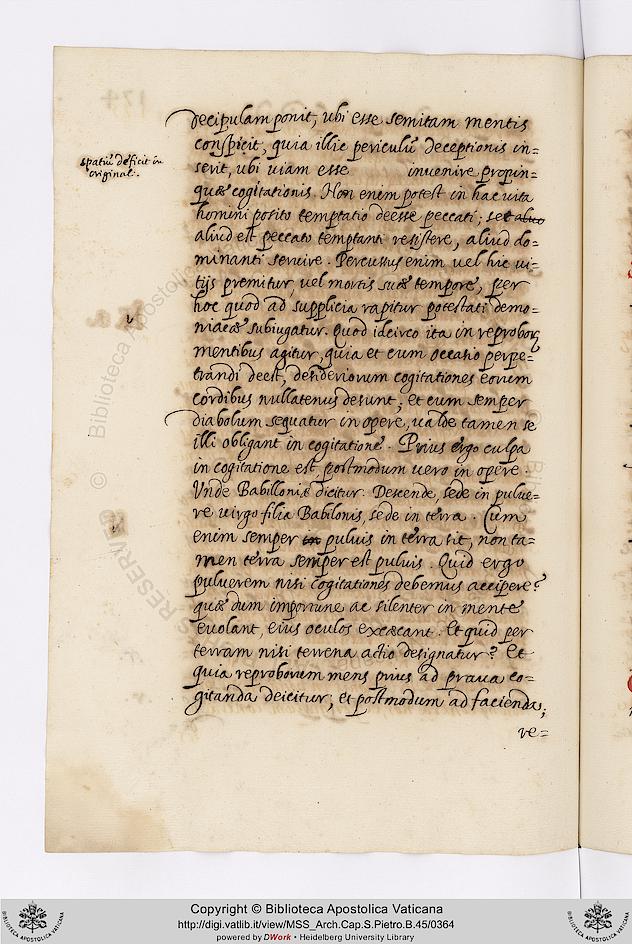 decipulam ponit, ubi esse semitam mentis
conspicit, quia illic periculũ deceptionis in=
serit, ubi viam esse invenire propin=
spatiũ deficit in
original:.
quæ cogitationis. Non enim potest in hac vita
homini posito temptatio deesse peccati; set aliud
aliud est peccato temptanti resistere, aliud do=
minanti servire. Percussus enim vel hic vi=
tijs premitur, vel mortis suæ tempore, per
hoc quod ad supplicia rapitur potestati demo=
v
niacæ subiugatur. Quod idcirco ita in reproborꝝ
mentibus agitur, quia et cum occasio perpe=
trandi deest, desideriorum cogitationes eorum
cordibus nullatenus desunt; et cum semper
diabolum sequatur in opere, valde tamen se
illi obligant in cogitatione. Prius ergo culpa
in cogitatione est, postmodum vero in opere.
Unde Babilloniæ dicitur. Descende, sede in pulve=
re virgo filia Babilonis, sede in terra. Cum
enim semper in pulvis in terra sit, non ta=
men terra semper est pulvis. Quid ergo
pulverem nisi cogitationes debemus accipere?
quæ dum importune ac silenter in mente
evolant, eius oculos excæcant. Et quid per
terram nisi terrena actio designatur? Et
quia reproborum mens prius ad prava co=
gitanda deicitur; et postmodum ad facienda;
ve=
Copyright © Biblioteca Apostolica Vaticana
http://digi.vatlib.it/view/MSS_Arch.Cap.S.Pietro.B.45/0364
powered by DWork • Heidelberg University Library